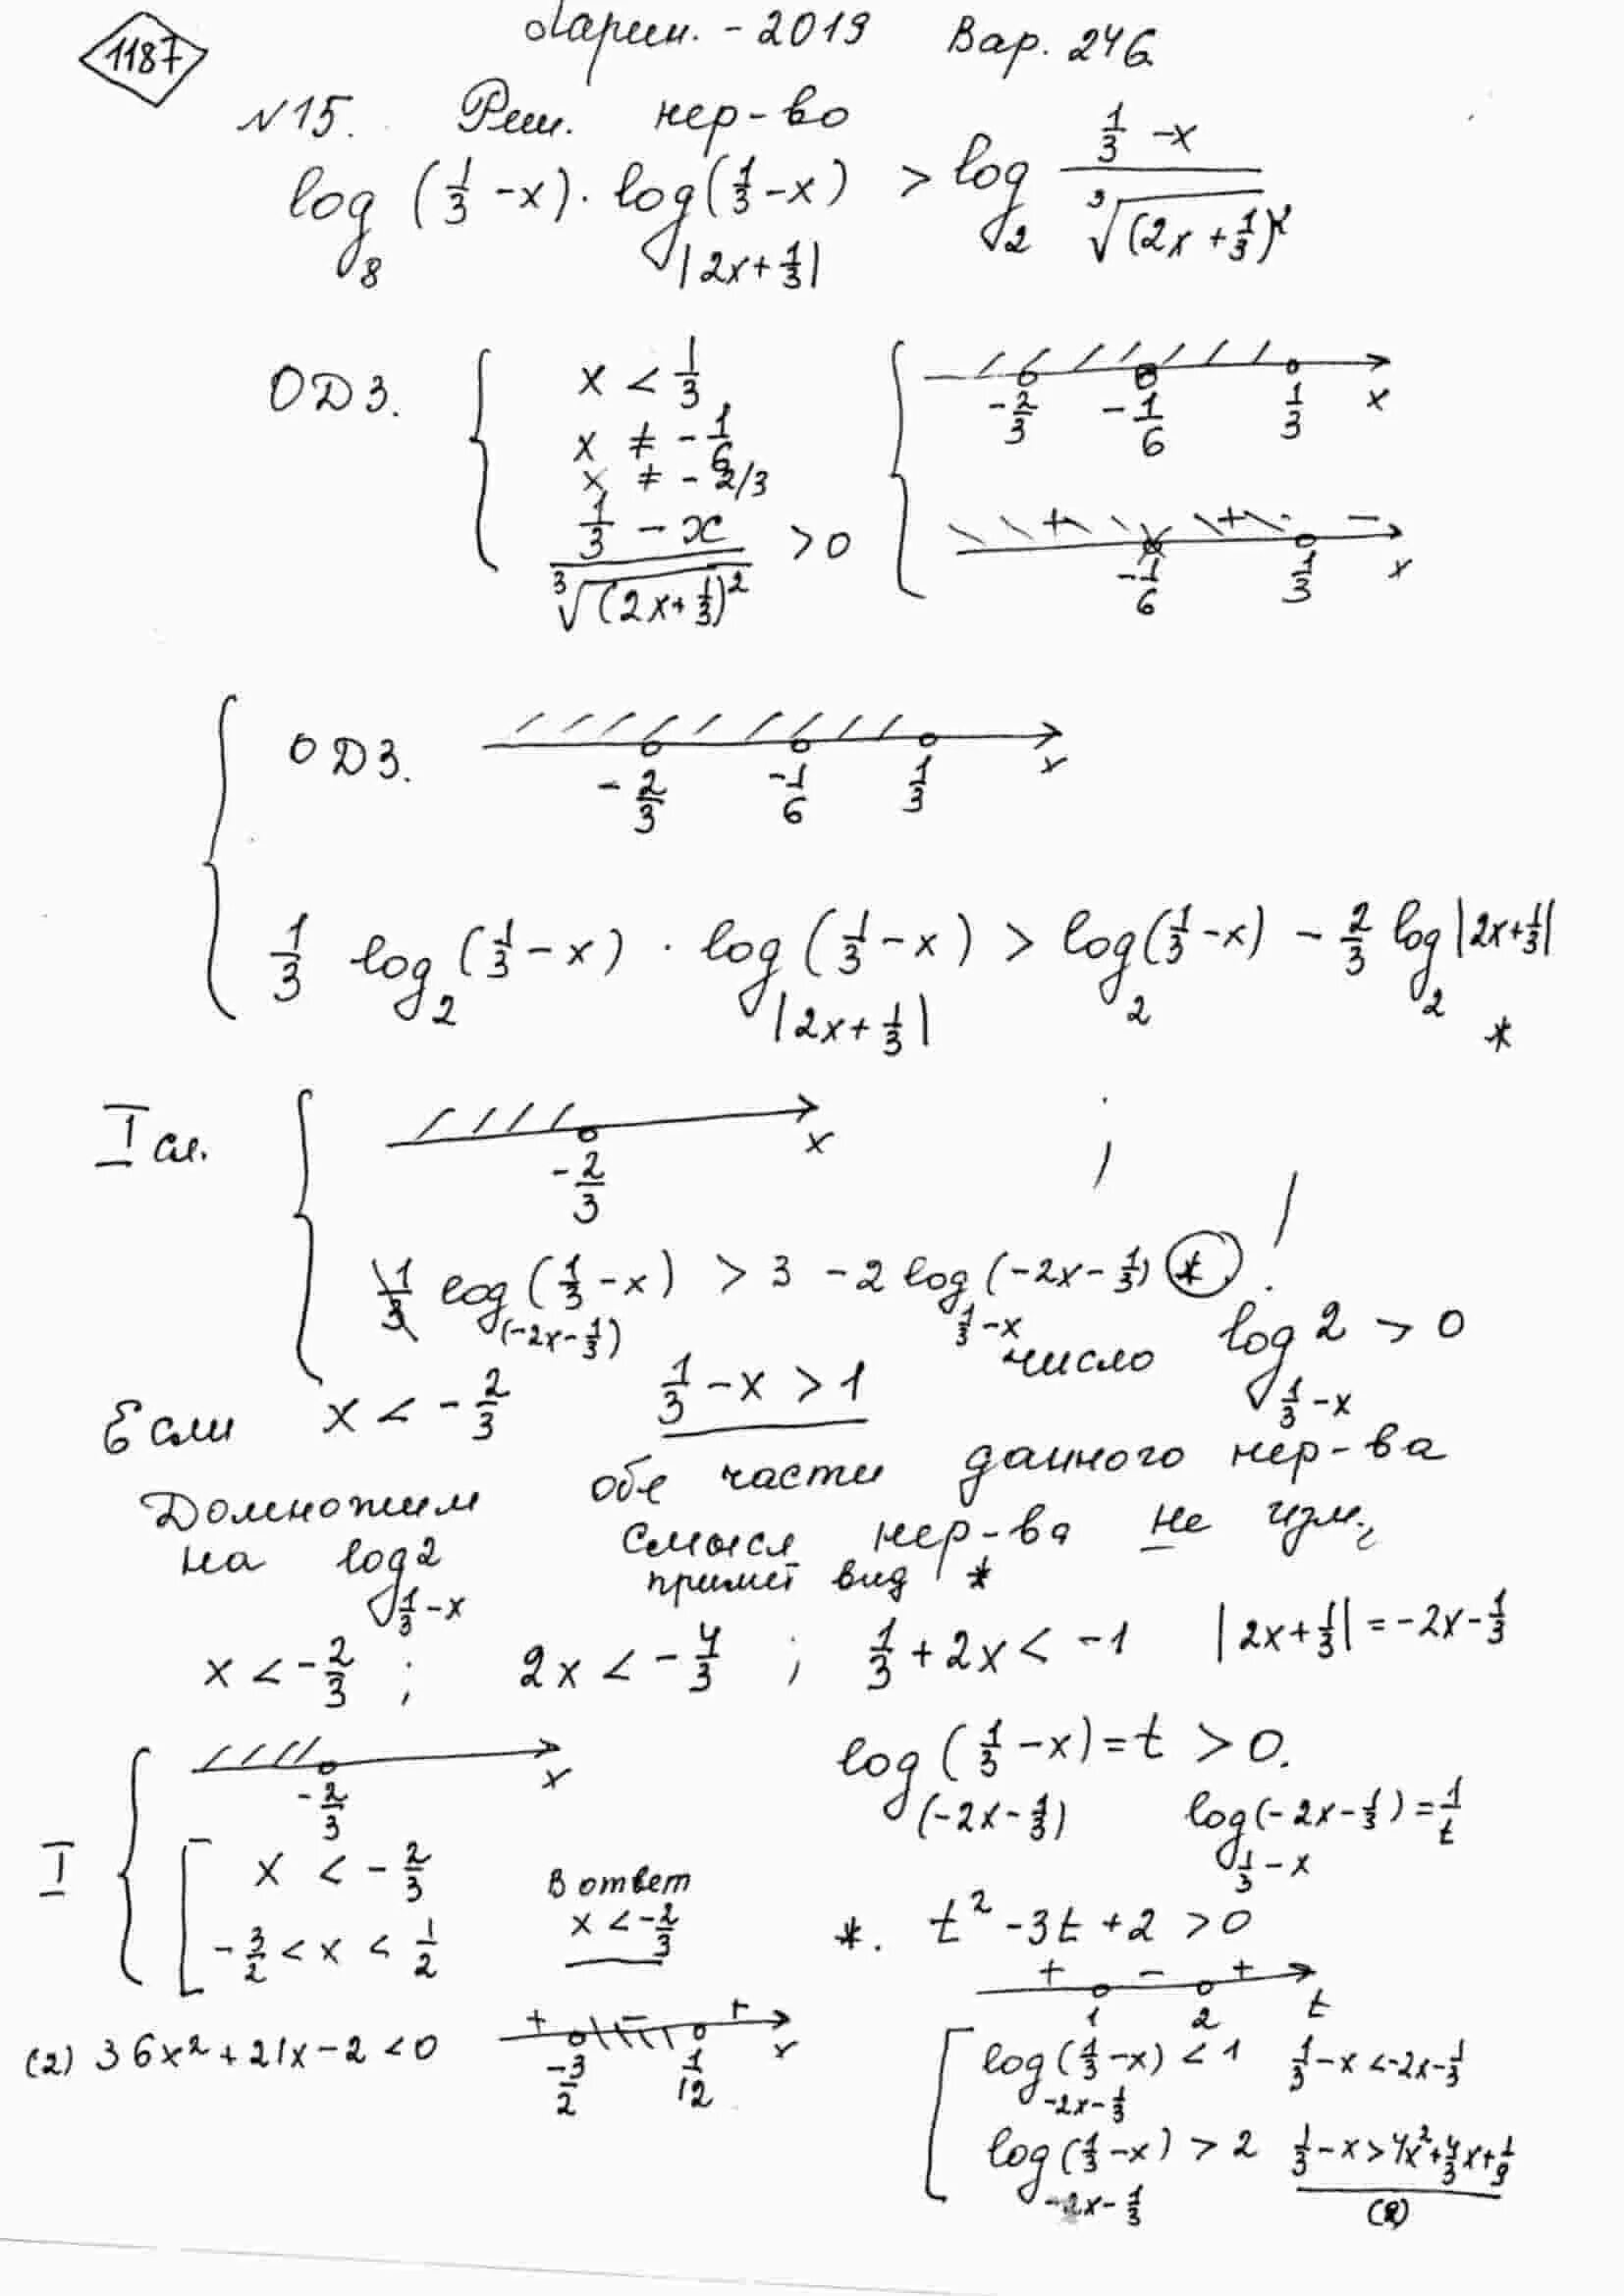 1187 Ларин. - 2019 Вар. 246
N15. Реш. нер-во
log_8 (1/3 - x) · log_|2x + 1/3| (1/3 - x) > log_2 (1/3 - x)/∛((2x + 1/3)^2)
ОДЗ. { x < 1/3
x ≠ - 1/6
x ≠ - 2/3
(1/3 - x)/∛((2x + 1/3)^2) > 0
{ - 2/3 - 1/6 1/3 x
+ + -
- 1/6 1/3 x
{ ОДЗ. - 2/3 - 1/6 1/3 x
1/3 log_2 (1/3 - x) · log_|2x + 1/3| (1/3 - x) > log_2 (1/3 - x) - 2/3 log_2 |2x + 1/3| *
I сл. { - 2/3 x
1/3 log_(-2x - 1/3) (1/3 - x) > 3 - 2 log_(1/3 - x) (-2x - 1/3) *
Если x < - 2/3 1/3 - x > 1 число log_(1/3 - x) 2 > 0
Домножим обе части данного нер-ва
на log_(1/3 - x) 2 смысл нер-ва не изм.,
примет вид *
x < - 2/3 ; 2x < - 4/3 ; 1/3 + 2x < -1 |2x + 1/3| = -2x - 1/3
I { - 2/3 x
[ x < - 2/3
- 3/2 < x < 1/2
В ответ
x < - 2/3
(2) 36x² + 21x - 2 < 0 + - + - 3/2 1/12 x
log_(-2x - 1/3) (1/3 - x) = t > 0.
log_(1/3 - x) (-2x - 1/3) = 1/t
*. t² - 3t + 2 > 0
+ - + 1 2 t
[ log_(-2x - 1/3) (1/3 - x) < 1 1/3 - x < -2x - 1/3
log_(-2x - 1/3) (1/3 - x) > 2 1/3 - x > 4x² + 4/3 x + 1/9
(2)